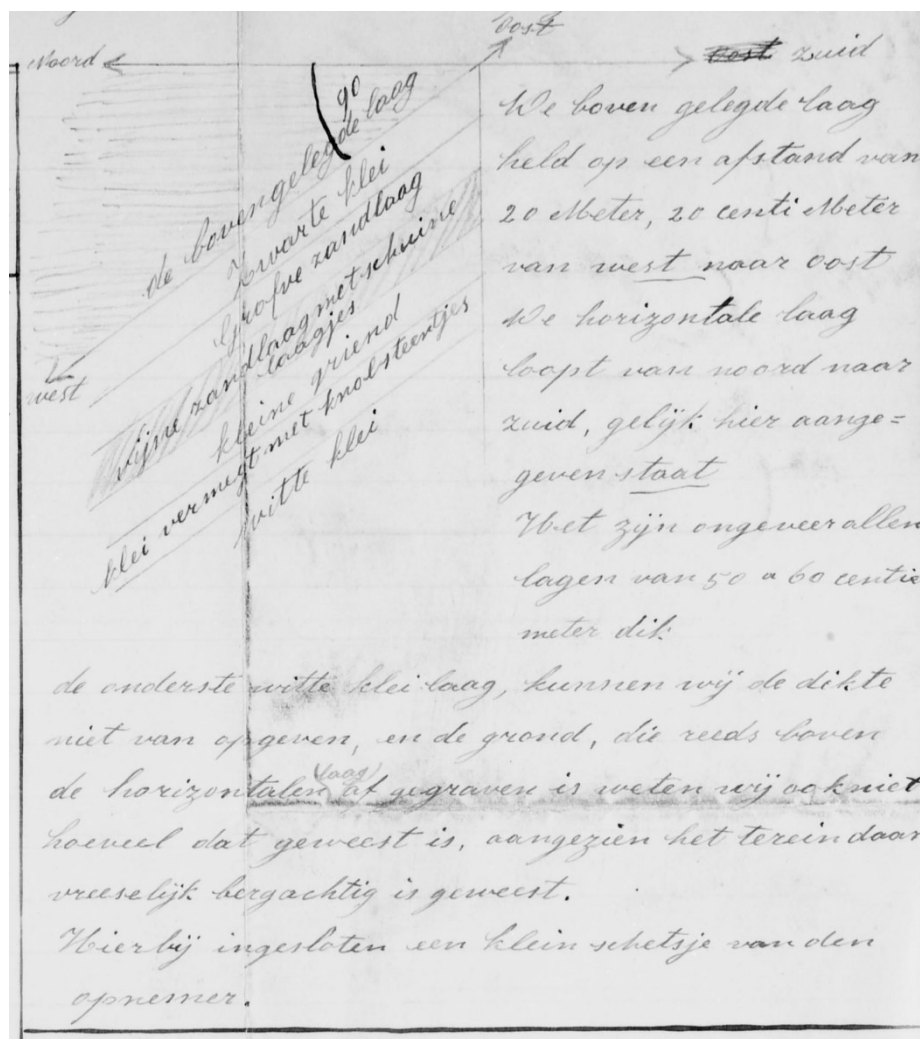 Oost
Noord
oost zuid
90
de bovengelegde laag
Zwarte klei
Grofve zandlaag
fijne zandlaag met schuine
laagjes
kleine griend
klei vermegt met knolsteentjes
witte klei
west
De boven gelegde laag
held op een afstand van
20 Meter, 20 centi Meter
van west naar oost
De horizontale laag
loopt van noord naar
zuid, gelijk hier aange=
geven staat
Het zijn ongeveer allen
lagen van 50 a 60 centie
meter dik
de onderste witte klei laag, kunnen wij de dikte
niet van opgeven, en de grond, die reeds boven
(laag)
de horizontalen af gegraven is weten wij ook niet
hoeveel dat geweest is, aangezien het terein daar
vreeselijk bergachtig is geweest.
Hierbij ingesloten een klein schetsje van den
opnemer.